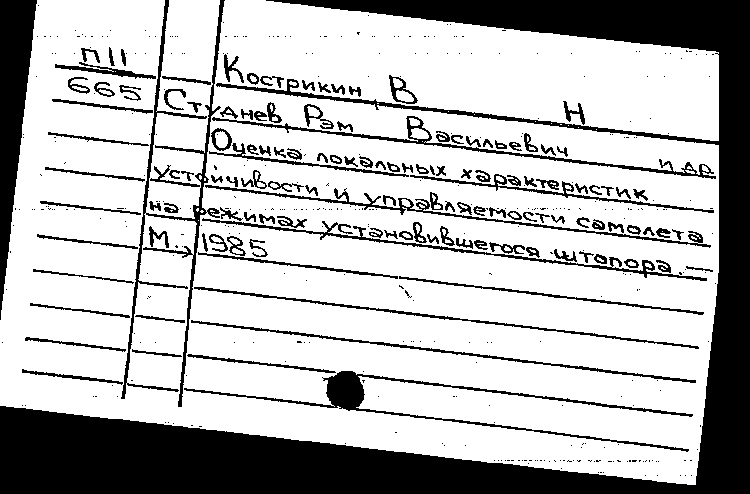 П11
665
Кострикин, В Н
Студнев, Рэм Васильевич и др.
Оценка локальных характеристик
устойчивости и управляемости самолета
на режимах установившегося штопора. —
М., 1985